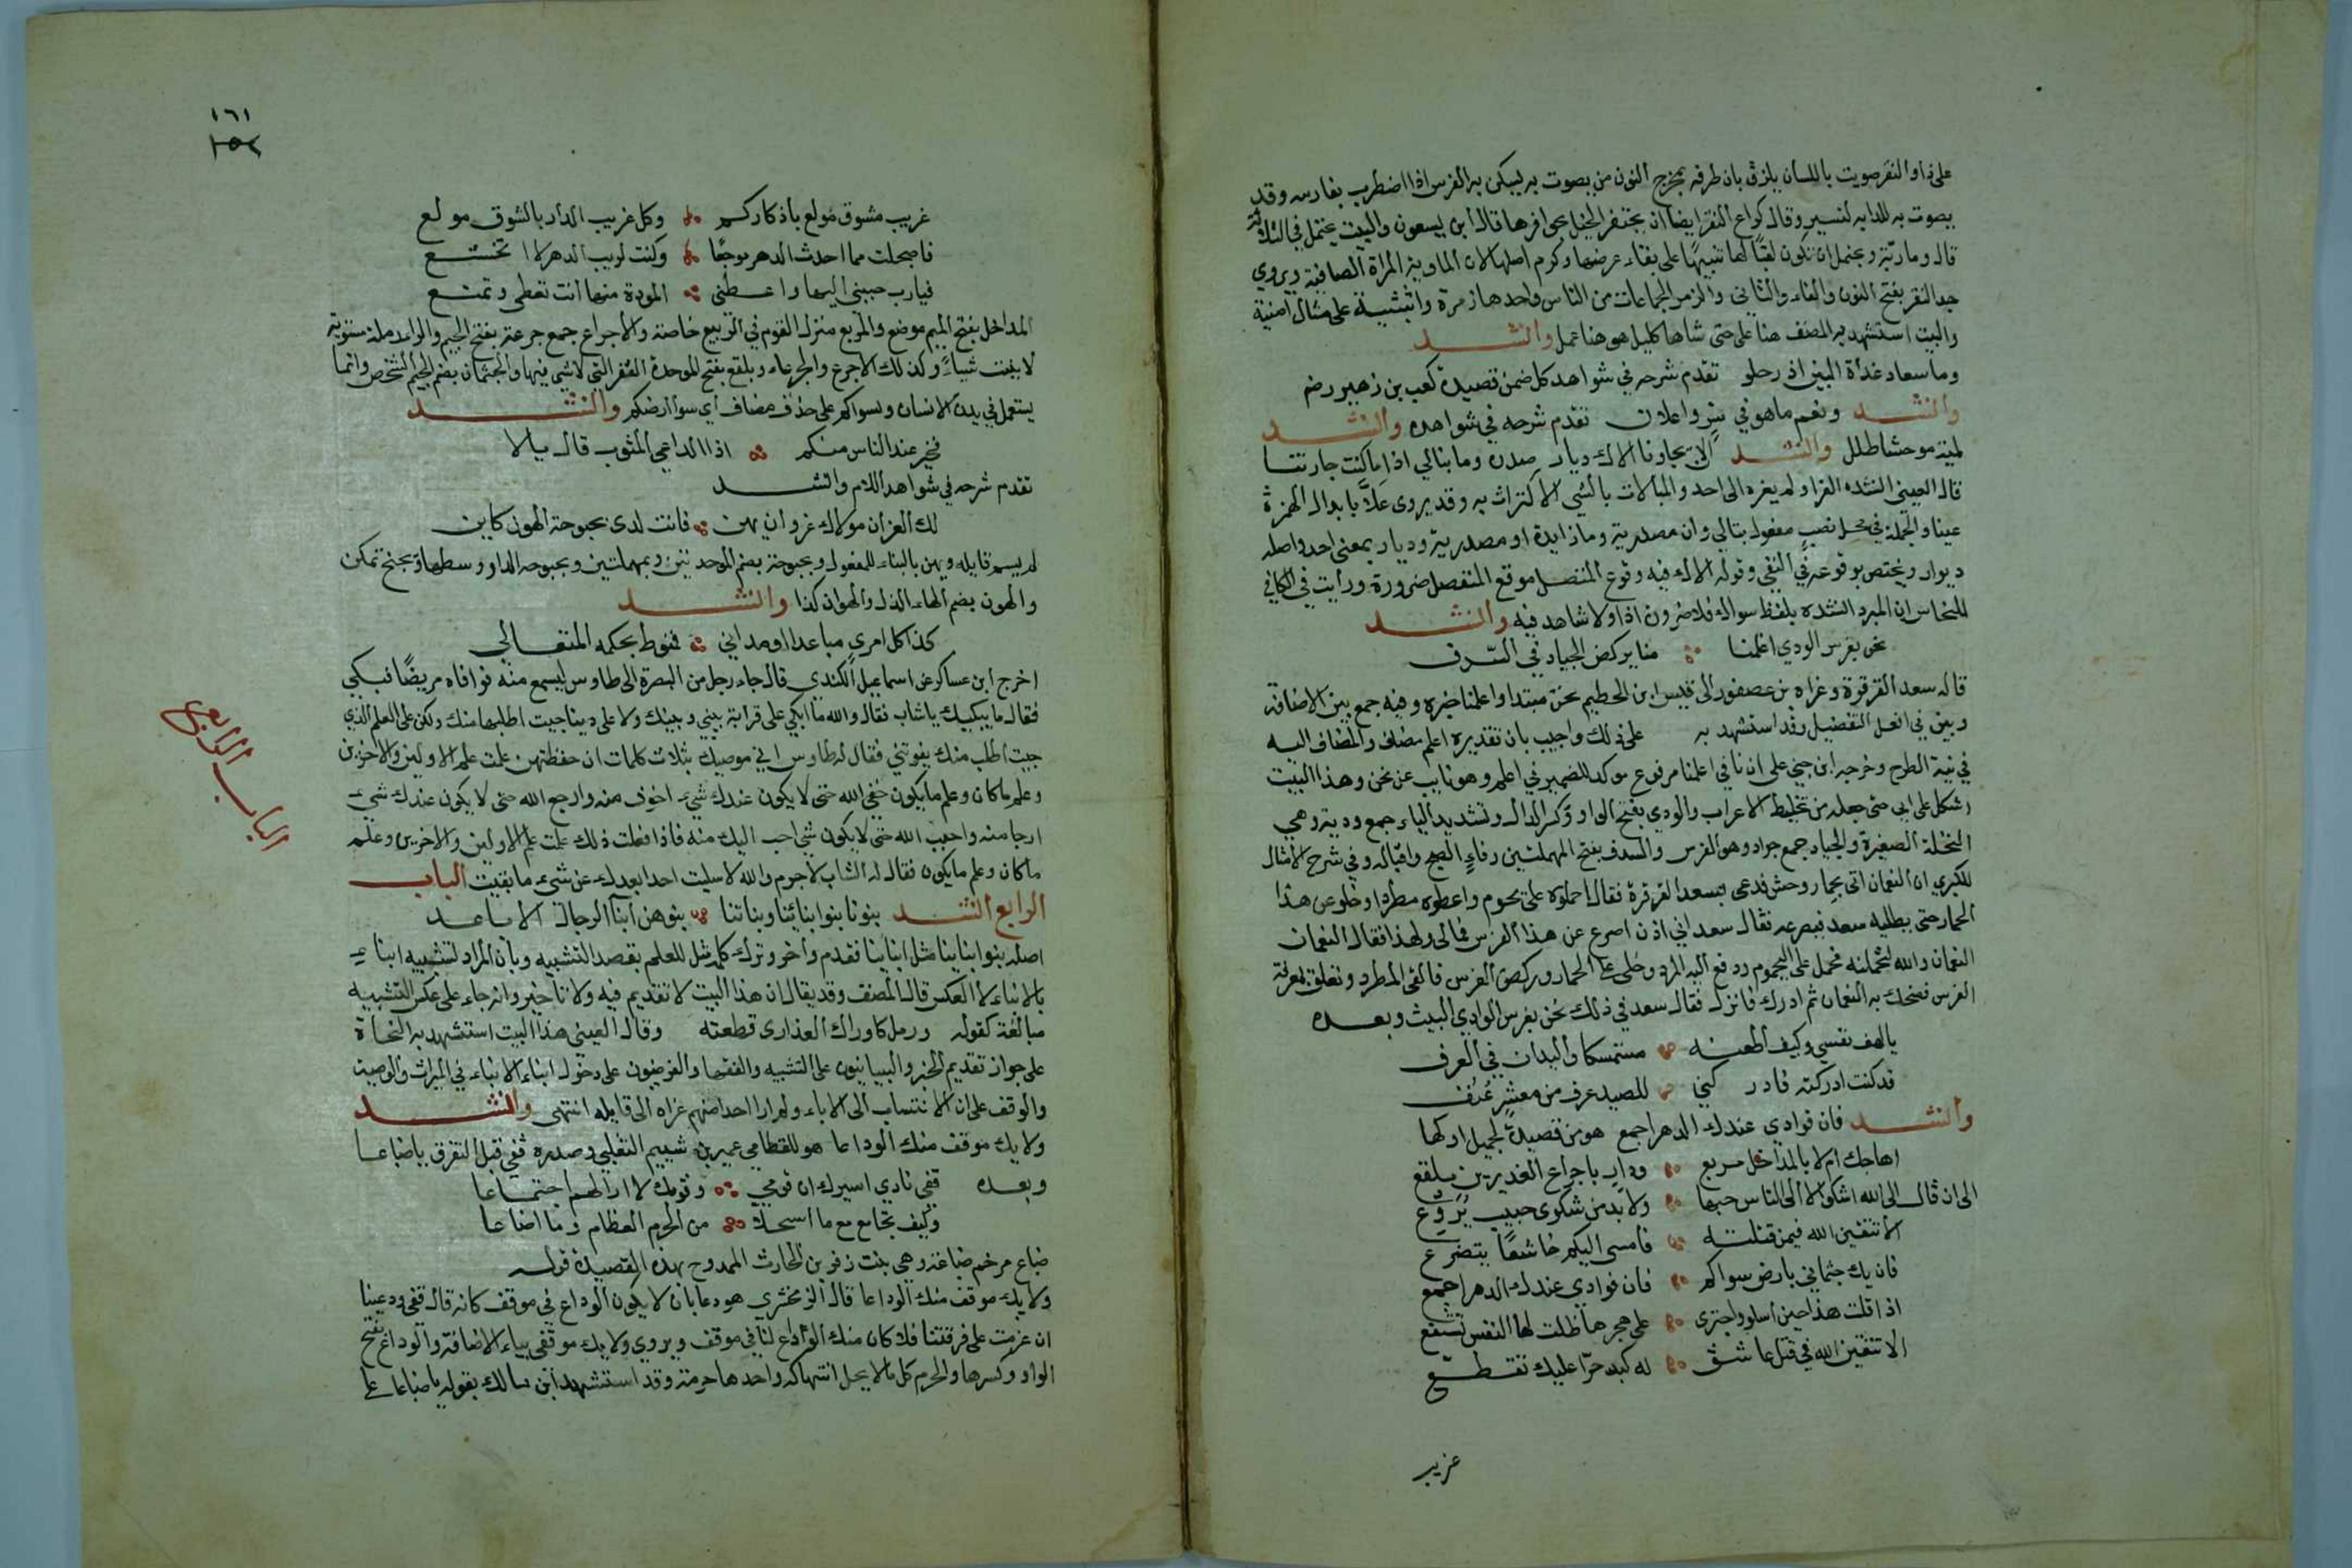 على ذا والنقر صويت باللسان يلزق بان طرفه بمخرج النون من بصوت به ليسكن به الفرس اذا اضطرب بفارسه وقد
يصوت به للدابه لتسير وقال كراع النقر ايضا ان يحتفر الخيل بحوافرها قال ابن يسعون والبيت يحتمل
قال ويحتمل ان تكون لقبا لها تنبيها على بقاء عرضها وكرم اصلها لان الماوية المراة الصافية ويروى
جد النقر بفتح النون والفاء والثاني والزمر الجماعات من الناس واحدها زمرة على مثال امنية
والبيت استشهد به المصنف هنا على حتى شاها كليل هو هنا عمل وانشد
وما سعاد غداة البين اذ رحلو تقدم شرحه في شواهد كل ضمن قصيدة كعب بن زهير رضه
وانشد ونعم ما هو في سر واعلان تقدم شرحه في شواهده وانشد
لمية موحشا طلل وانشد ان لا يجاورنا الاك ديار صدره وما نبالي اذا ما كنت جارتنا
قال العيني انشده الفرا ولم يعزه الى احد والمبالات بالشي الاكتراث به وقد يروى علا بابدال الهمزة
عينا والجملة في محل نصب مفعول نبالي وان مصدرية وما زايدة او مصدرية وديار بمعنى احد واصله
ديوار ويختص بوقوعه في النفي وقوله الاك فيه وقوع المتصل موقع المنفصل ضرورة ورايت في الكافي
للنحاس ان المبرد انشده بلفظ سواك فلا ضرورة اذا ولا شاهد فيه وانشد
نحن بغرس الودي اعلمنا منا بركض الجياد في السدف
قاله سعد القرقرة وعزاه بن عصفور الى قيس ابن الحطيم نحن مبتدا واعلمنا خبره وفيه جمع بين الاضافة
وبين في افعل التفضيل وقد استشهد به على ذلك واجيب بان تقديره اعلم مضاف والمضاف اليه
في نية الطرح وخرجه ابن جني على ان نا في اعلمنا مرفوع موكد للضمير في اعلم وهو نايب عن نحن وهذا البيت
اشكل على ابي حتى جعله من تخليط الاعراب والودي بفتح الواو وكسر الدال وتشديد الياء جمع ودية وهي
النخلة الصغيرة والجياد جمع جواد وهو الفرس والسدف بفتح المهملتين وفاء الصبح واقباله وفي شرح الامثال
للبكري ان النعمان اتى بحمار وحش فدعى بسعد القرقرة فقال احملوه على اليحموم واعطوه مطردا وخلو عن هذا
الحمار حتى يطلبه سعد فيصرعه فقال سعد اني اذن اصرع عن هذا الفرس فمالي ولهذا فقال النعمان
النعمان والله لتحملنه فحمل على اليحموم ودفع اليه المطرد وخلى على الحمار وركض الفرس فالقى المطرد وتعلق بمعرفة
الفرس فضحك به النعمان ثم ادرك فانزل فقال سعد في ذلك نحن بغرس الوادي البيت وبعده
يالهف نفسي وكيف اطعنه مستمسكا واليدان في العرف
قد كنت ادركته فادركني للصيد عرف من معشر عنف
وانشد فان فوادي عندك الدهر اجمع هو من قصيدة لجميل اولها
اهاجك ام لا بالمداخل مربع ودار باجراع الغديرين بلقع
الى ان قال الى الله اشكو لا الى الناس حبها ولا بد من شكوى حبيب يروع
الا تتقين الله فيمن قتلته فامسى اليكم خاشعا يتضرع
فان يك جثماني بارض سواكم فان فوادي عندك الدهر اجمع
اذا قلت هذا حين اسلو واجتري على هجرها ظلت لها النفس تشفع
الا تتقين الله في قتل عاشق له كبد حرا عليك تقطع
غريب
١٦١
١٥٢
غريب مشوق مولع باذكاركم وكل غريب الدار بالشوق مولع
فاصبحت مما احدث الدهر موجعا وكنت لريب الدهر لا اتخشع
فيارب حببني اليها واعطني المودة منها انت تعطي وتمنع
المداخل بفتح الميم موضع والمربع منزل القوم في الربيع خاصة والاجراع جمع جرعة بفتح الجيم والراء رملة مستوية
لا ينبت شياء وكذلك الاجرع والجرعاء وبلقع بفتح الموحدة القفر التي لا شي فيها والجثمان بضم الجيم الشخص وانما
يستعمل في بدن الانسان وسواكم على حذف مضاف اي سوا ارضكم وانشد
فخير عند الناس منكم اذا الداعي المثوب قال يالا
تقدم شرحه في شواهد اللام وانشد
لك العز ان مولاك عز وان يهن فانت لدى بحبوحة الهون كاين
لم يسم قايله ويهن بالبناء للمفعول وبحبوحة بضم الموحدتين وبمهملتين وبحبوحه الدار وسطها وتبحبح تمكن
والهون بضم الهاء الذل والهوان كذا وانشد
كذا كل امري مباعد او مداني فنوط بحكمه المتعالي
اخرج ابن عساكر عن اسماعيل الكندي قال جاء رجل من البصرة الى طاوس ليسمع منه فوافاه مريضا فبكي
فقال ما يبكيك ياشاب فقال والله ما ابكي على قرابة بيني وبينك ولا على دينا جيت اطلبها منك ولكن على العلم الذي
جيت اطلب منك يفوتني فقال له طاوس اني موصيك بثلاث كلمات ان حفظتهن علمت علم الاولين والاخرين
وعلم ماكان وعلم ما يكون خف الله حتى لا يكون عندك شيء اخوف منه وارج الله حتى لا يكون عندك شيء
ارجا منه واحب الله حتى لا يكون شي احب اليك منه فاذا فعلت ذلك علمت علم الاولين والاخرين وعلم
ماكان وعلم ما يكون فقال له الشاب لاجرم والله لا سليت احدا بعدك عن شيء ما بقيت الباب
الرابع انشد بنونا بنوا ابنائنا وبناتنا بنوهن ابنا الرجال الاباعد
اصله بنوا ابناينا مثل ابناينا فقدم واخر وترك كلمة مثل للعلم بقصد التشبيه وبان المراد تشبيه ابناء
بالابناء لا العكس قال المصنف وقد يقال ان هذا البيت لا تقديم فيه ولا تاخير وانه جاء على عكس التشبيه
مبالغة كقوله ورمل كاوراك العذارى قطعته وقال العيني هذا البيت استشهد به النحاة
على جواز تقديم الخبر والبيانيون على التشبيه والفقها والفرضيون على دخول ابناء الابناء في الميراث والوصية
والوقف على ان الانتساب الى الاباء ولم ارا احدا منهم عزاه الى قايله انتهى وانشد
ولا يك موقف منك الوداعا هو للقطامي عمير بن شييم التغلبي وصدره قفي قبل التفرق ياضباعا
وبعده قفي فادي اسيرك ان قومي وقومك لا ارا لهم اجتماعا
وكيف تجامع مع ما استحلا من الحرم العظام وما اضاعا
ضباع مرخم ضباعة وهي بنت زفر بن الحارث الممدوح بهذه القصيدة قوله
ولا يك موقف منك الوداعا قال الزمخشري هو دعا بان لا يكون الوداع في موقف كانه قال قفي ودعينا
ان عزمت على فرقتنا فلا كان منك الوداع لنا في موقف ويروي ولا يك موقفي بياء الاضافة والوداع بفتح
الواو وكسرها والحرم كل مالا يحل انتهاكه واحدها حرمة وقد استشهد ابن مالك بقوله ياضباعا على
الباب الرابع